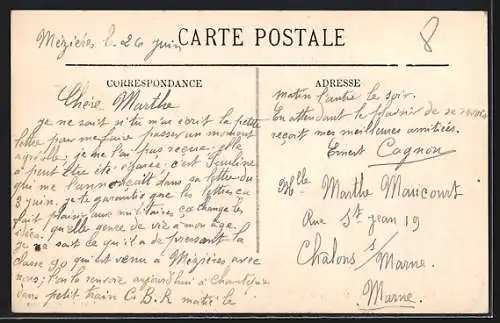 Mézières le 26 juin
CARTE POSTALE
8
CORRESPONDANCE
Chère Marthe
je ne sait si tu m'as écrit la petite
lettre pour me faire passer un moment
agréable; je ne l'ai pas reçue elle
a peut être été égarée c'est Pauline
qui me l'annonçait dans sa lettre du
3 juin, je te garantie que les lettres ca
fait plaisir aux militaires ça change les
idées; qu'elle genre de vie a mon age.
je ne sait ce qu'il a de pressant la
classe 90 qui est venu a Mézières avec
nous; l'on la renvoie aujourd'hui à
dans petit train C B R matin le
ADRESSE
matin l'autre le soir.
En attendant le plaisir de se revoir
reçoit mes meilleures amitiées.
Ernest Cognon
Mlle Marthe Maucourt
Rue St jean 19
Chalons s/ Marne.
Marne.